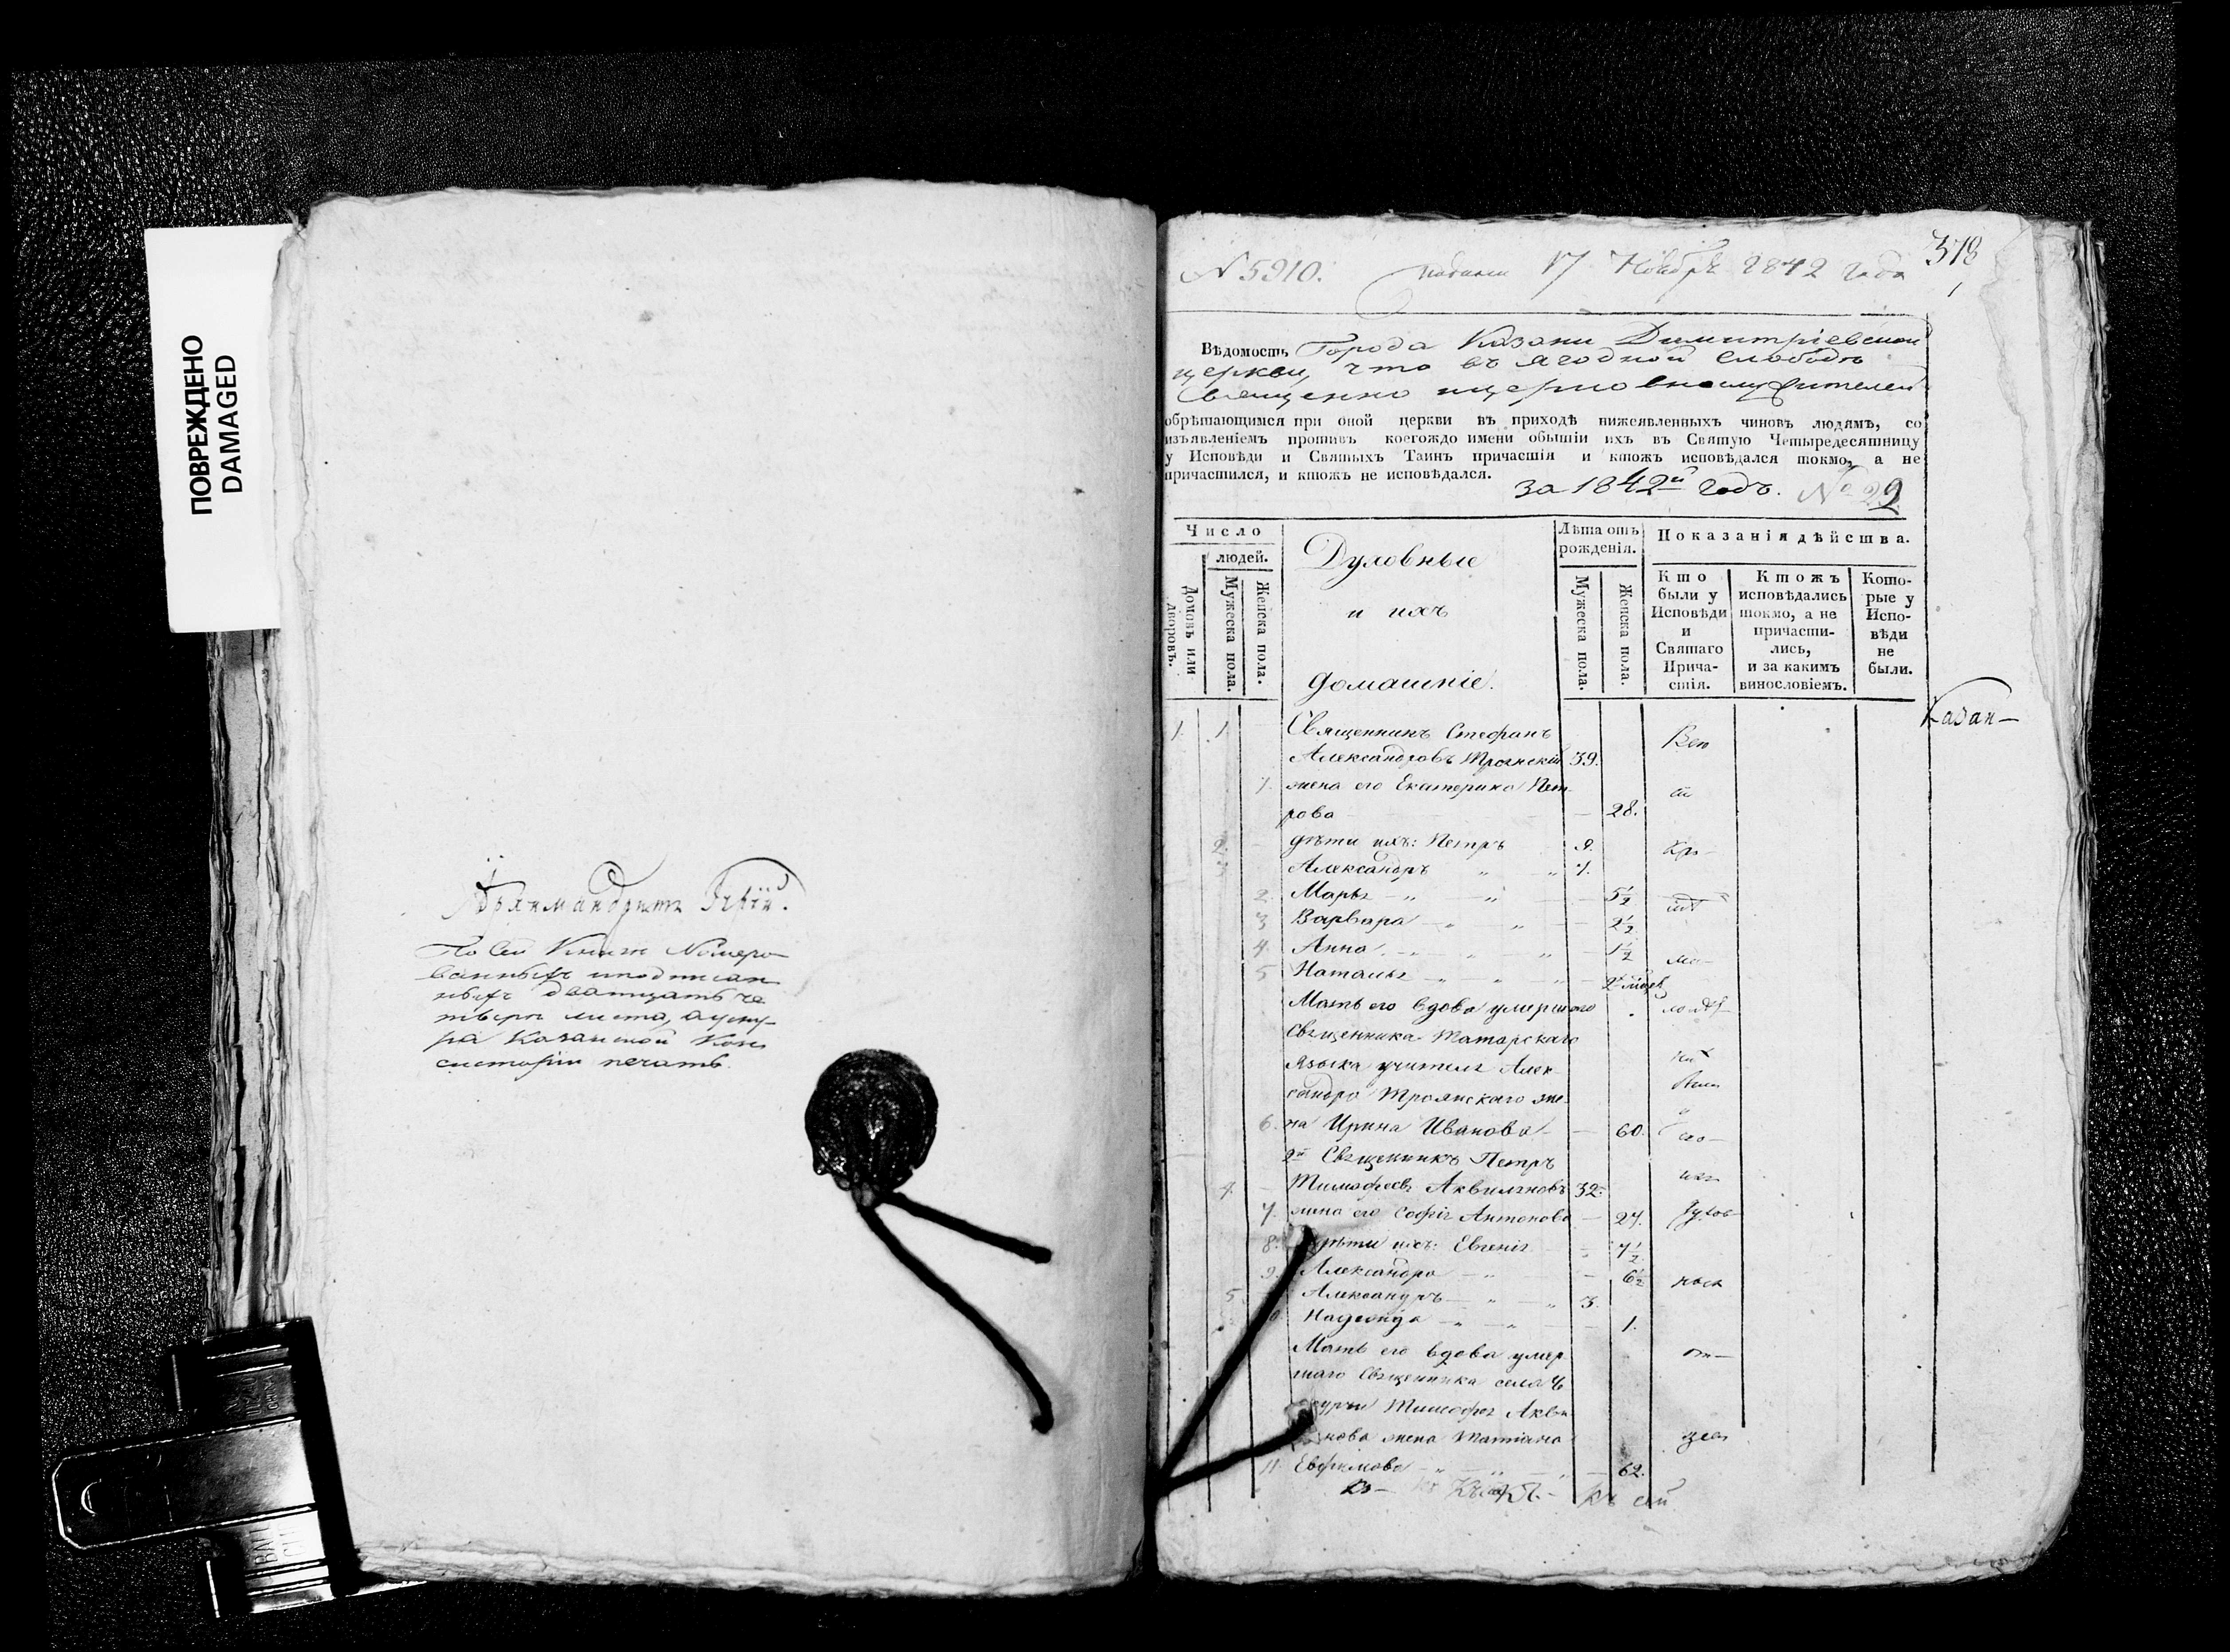 ПОВРЕЖДЕНО
DAMAGED
Архимандритъ
По сей Книгѣ Номеро-
ванныхъ и подписан
ныхъ дватцать че
тыре листа, а у сну-
ра Казанской Кон
систоріи печать.
378
N 5910. 17 Ноябрѧ 1842 года
Вѣдомость Города Казани Димитріевской
церкви, что въ Ягодной Слободѣ
Священно церковнослужителей
обрѣтающимся при оной церкви въ приходѣ нижеявленныхъ чиновъ людямъ, со
изъявленіемъ противъ коегождо имени бытіи ихъ въ Святую Четыредесятницу
у Исповѣди и Святыхъ Таинъ причастія и ктожъ исповѣдался токмо, а не
причастился, и ктожъ не исповѣдался.
за 1842й годъ. № 29
Число
людей.
Домовъ или дворовъ.
Мужеска пола.
Женска пола.
Духовные
и ихъ
домашніе.
Лѣта отъ
рожденія.
Мужеска пола.
Женска пола.
Показанія дѣйства.
Кто
были у
Исповѣди
и
Святаго
Прича-
стія.
Ктожъ
исповѣдались
токмо, а не
причасти-
лись,
и за какимъ
винословіемъ.
Кото-
рые у
Испо-
вѣди
не
были.
Казан-
1. 1. Священникъ Стефанъ
Александровъ Троянскій 39.
1. жена его Екатерина Пет-
рова 28.
2. дѣти ихъ: Петръ 9.
3 Александръ " " 7.
2. Марья " " 5½
3 Варвара " " 2½
4. Анна " " 1½
5 Наталья " "
Мать его вдова умершаго
Священника Татарскаго
Языка учителя Алек-
сандра Троянскаго же-
6. на Ирина Иванова 60.
2й Священникъ Петръ
4. Тимофеевъ Аквиляновъ 32.
7. жена его Софія Антонова 27.
8. дѣти ихъ: Евгенія 7½
9. Александра " 6½
5 Александръ " " 3.
Надежда " " 1.
Мать его вдова умер
шаго Священника села
Тимофея Акви
нова жена Татіана
11. Евфимова " " 62.